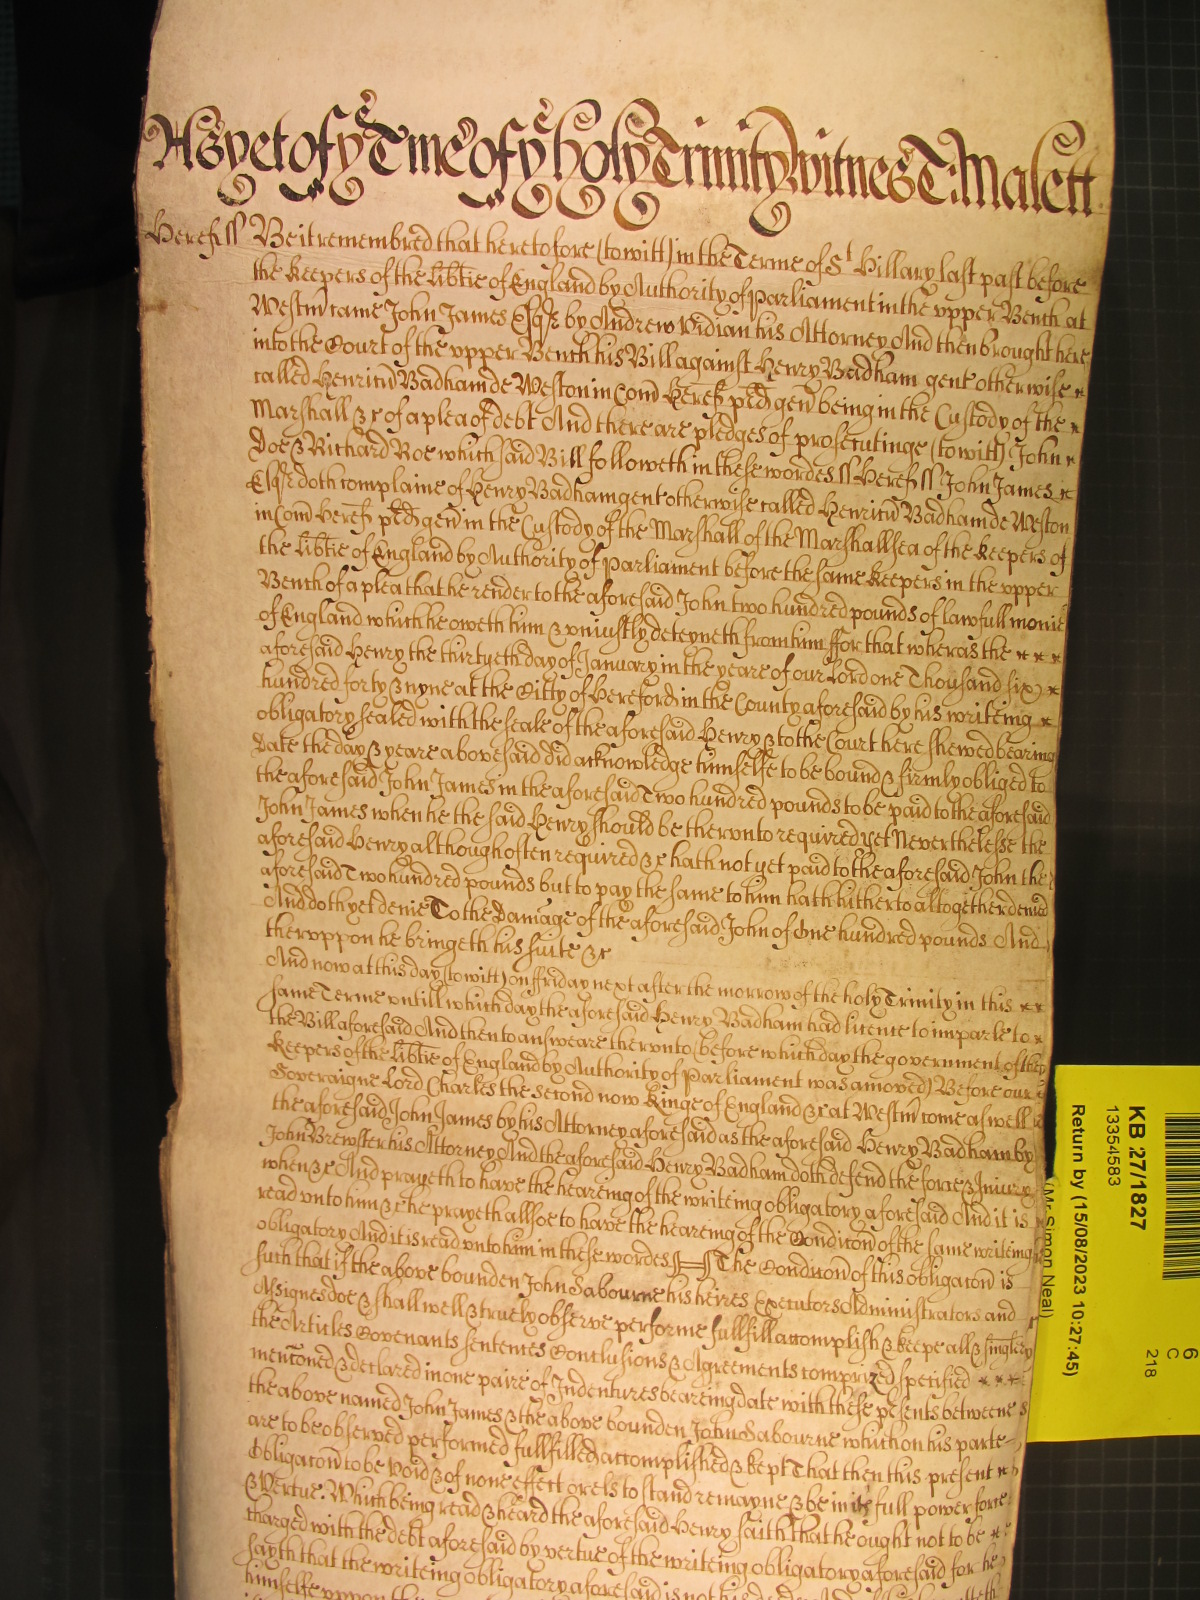 As yet of ye Tme of ye holy Trinity witnes T: Malett
Heref: ss Be it remembred that heretofore (to witt) in the Terme of St Hillary last past before
the keepers of the libtie of England by Authority of Parliament in the vpper Bench at
Westm came John James Esqr by Andrew Vidian his Attorney And then brought here
into the Court of the vpper Bench his Bill against Henry Badham gent otherwise
called Henricu Badham de Weston in Com Heref pred gen being in the Custody of the
Marshall &c of a plea of debt And there are pledges of prosecutinge (to witt) John
Doe & Richard Roe which said Bill followeth in these wordes ss Heref ss John James
Esqr doth complaine of Henry Badham gent otherwise called Henricu Badham de Weston
in Com Heref pred gen in the Custody of the Marshall of the Marshallsea of the keepers of
the libtie of England by Authority of Parliament before the same keepers in the vpper
Bench of a plea that he render to the aforesaid John two hundred pounds of lawfull monie
of England which he oweth him & vniustly deteyneth from him ffor that wheras the
aforesaid Henry the thirtyeth day of January in the yeare of our Lord one Thousand six
hundred forty & nyne at the Citty of Hereford in the County aforesaid by his writeing
obligatory sealed with the seale of the aforesaid Henry & to the Court here shewed bearing
date the day & yeare abovesaid did acknowledge himselfe to be bound & firmly obliged to
the aforesaid John James in the aforesaid Two hundred pounds to be paid to the aforesaid
John James when he the said Henry should be therevnto required yet Neverthelesse the
aforesaid Henry although often required &c hath not yet paid to the aforesaid John the
aforesaid Two hundred pounds but to pay the same to him hath hitherto altogether denied
And doth yet denie To the Damage of the aforesaid John of One hundred pounds And
thervppon he bringeth his suite &c
And now at this day (to witt) on ffriday next after the morrow of the holy Trinity in this
same Terme vntill which day the aforesaid Henry Badham had licence to imparle to
the Bill aforesaid And then to answeare thervnto (before which day the government of the
keepers of the libtie of England by Authority of Parliament was amoved) Before our
Soveraigne Lord Charles the second now Kinge of England &c at Westm come aswell
the aforesaid John James by his Attorney aforesaid as the aforesaid Henry Badham by
John Brewster his Attorney And the aforesaid Henry Badham doth defend the force & Iniury
when &c And prayeth to have the heareing of the writeing obligatory aforesaid And it is
read vnto him &c he prayeth allsoe to have the heareing of the Condicon of the same writeing
obligatory And it is read vnto him in these wordes ss The Condicon of this obligacon is
such that if the above bounden John Sabourne his heires Executors Administrators and
Assignes doe & shall well & truely observe performe fullfill accomplish & keepe all & singler
the Articles Covenants sentences Conclusions & Agreements comprized specified
menconed & declared in one paire of Indentures beareing date with these psents betweene
the above named John James & the above bounden John Sabourne which on his parte
are to be observed performed fullfilled accomplished & kept That then this present
Obligacon to be void & of none effect or els to stand remayne & be in its full power force
& Vertue. Which being read & heard the aforesaid Henry saith that he ought not to be
charged with the debt aforesaid by vertue of the writeing obligatory aforesaid for he
sayth that the writeing obligatory aforesaid is not his deed
himselfe vppon the
KB 27/1827
13354583
Return by (15/08/2023 10:27:45)
(Mr Simon Neal)
6
C
218